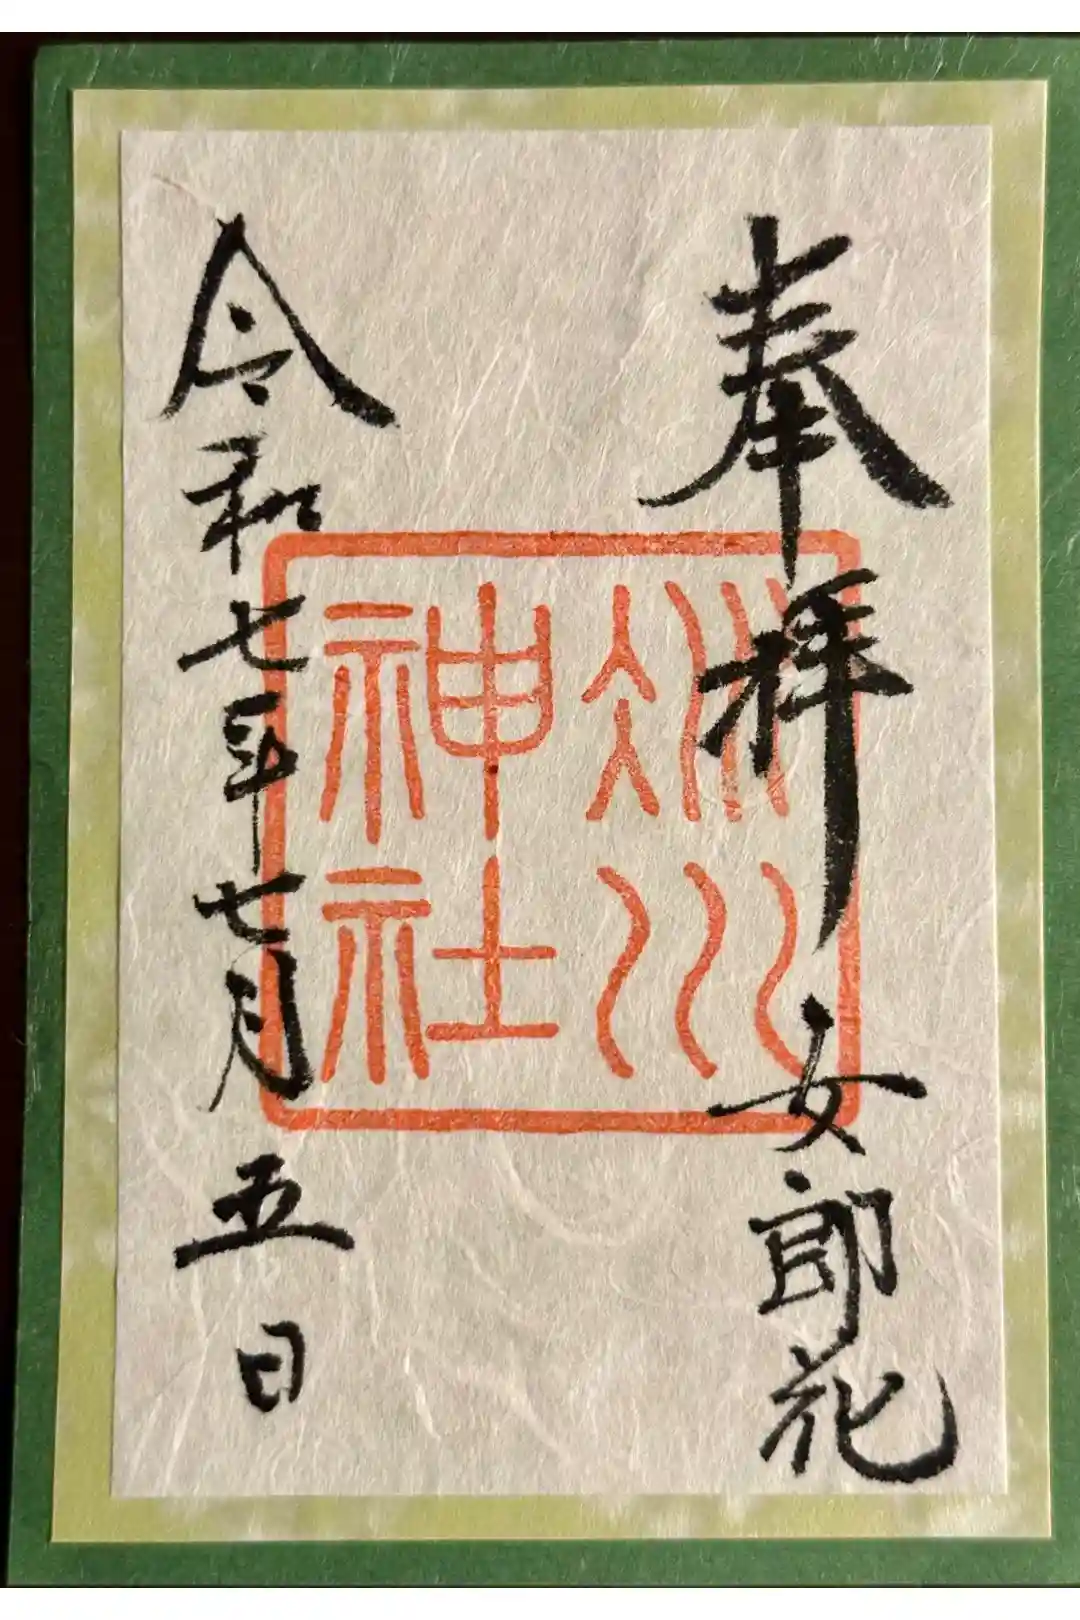 奉拝 女郎花
冰川
神社
令和七年七月五日